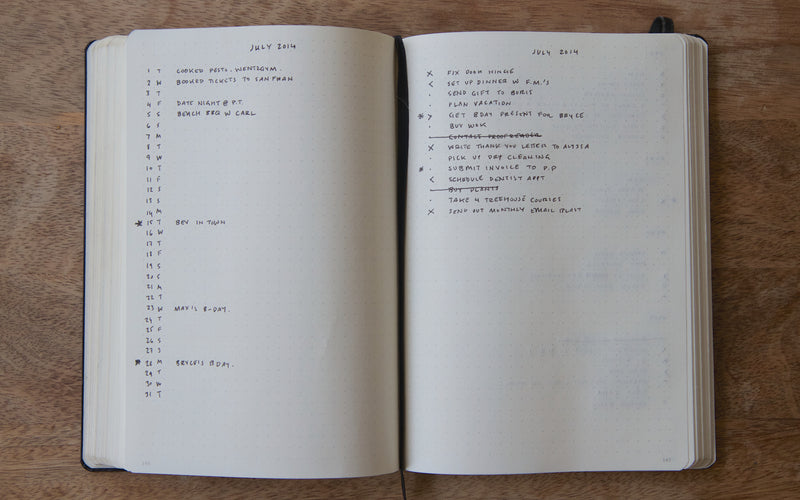 JULY 2014
1 T COOKED PESTO. WENT2GYM.
2 W BOOKED TICKETS TO SAN FRAN
3 T
4 F DATE NIGHT @ P.T.
5 S BEACH BBQ W CARL
6 S
7 M
8 T
9 W
10 T
11 F
12 S
13 S
14 M
* 15 T BEV IN TOWN
16 W
17 T
18 F
19 S
20 S
21 M
22 T
23 W MAX'S B-DAY.
24 T
25 F
26 S
27 S
* 28 M BRYCE'S BDAY.
29 T
30 W
31 T
JULY 2014
X FIX DOOR HINGE
< SET UP DINNER W F.M.'S
· SEND GIFT TO BORIS
· PLAN VACATION
* > GET BDAY PRESENT FOR BRYCE
· BUY WOK
CONTACT PROOFREADER
X WRITE THANK YOU LETTER TO ALYSSA
· PICK UP DRY CLEANING
* · SUBMIT INVOICE TO P.P
< SCHEDULE DENTIST APPT
BUY PLANTS
· TAKE 4 TREEHOUSE COURSES
X SEND OUT MONTHLY EMAIL BLAST